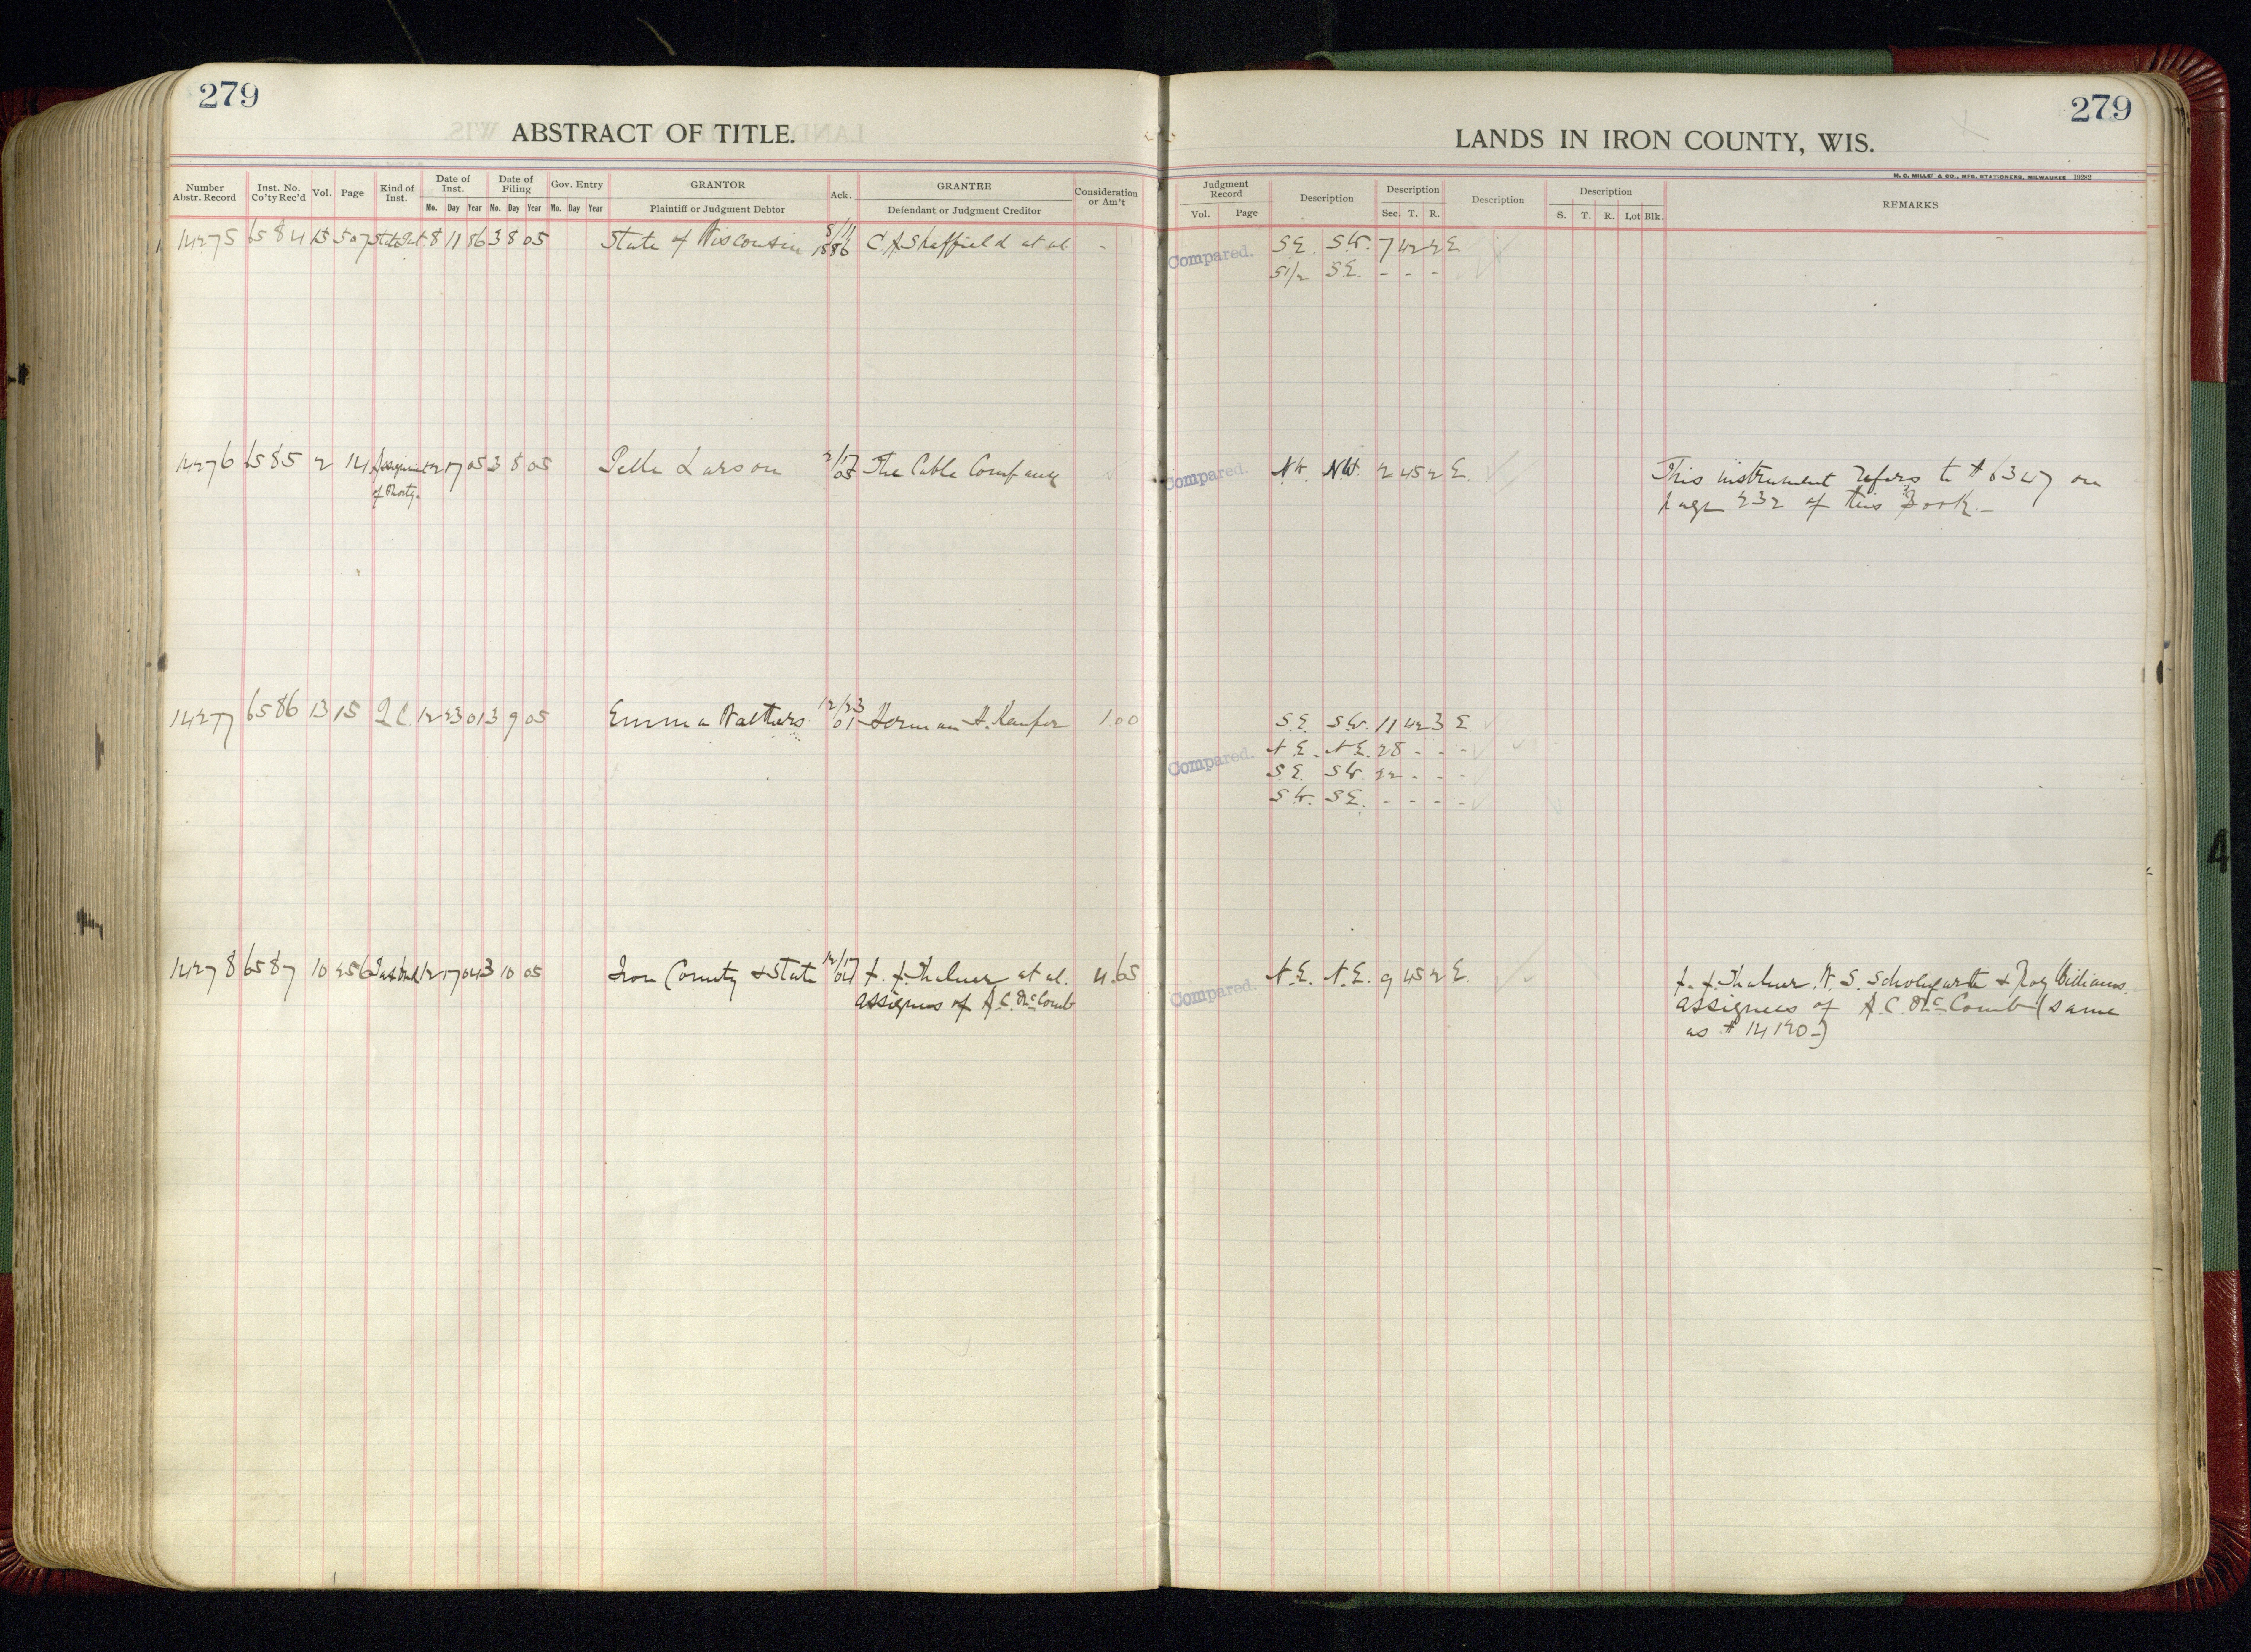 279
ABSTRACT OF TITLE.
Number Abstr. Record
Inst. No. Co'ty Rec'd
Vol.
Page
Kind of Inst.
Date of Inst.
Mo. Day Year
Date of Filing
Mo. Day Year
Gov. Entry
Mo. Day Year
GRANTOR
Plaintiff or Judgment Debtor
Ack.
GRANTEE
Defendant or Judgment Creditor
Consideration or Am't
14275 6584 13 507 State Pat. 8 11 86 3 8 05 State of Wisconsin 8/11 1886 C. A. Sheffield et al -
14276 6585 2 141 Assignment 2 17 05 3 8 05 Pelle Larson 2/17 05 The Cable Company
of Mortg.
14277 6586 13 15 Q.C. 12 23 01 3 9 05 Emma Walthers 12/23 01 Herman H. 1.00
14278 6587 10 256 Tax Deed 12 17 04 3 10 05 Iron County & State 12/17 04 et al. 4.65
assignees of A.C. McComb
279
LANDS IN IRON COUNTY, WIS.
H. C. MILLER CO., MFG. STATIONERS, MILWAUKEE 19282
Judgment Record
Vol. Page
Description
Description
Sec. T. R.
Description
Description
S. T. R. Lot Blk.
REMARKS
Compared.
S.E. S.W. 7 42 2 E
S1/2 S.E. - - -
Compared.
N.W. N.W. 2 45 2 E.
This instrument refers to # 6347 on
page 232 of this Book.-
S.E. S.W. 11 42 3 E.
N.E. N.E. 28 - - -
Compared.
S.E. S.W. 22 - - -
S.W. S.E. - - - -
Compared.
N.E. N.E. 9 45 2 E.
W. S. & Roy Williams.
assignees of A.C. McComb (same
as # 14120-)